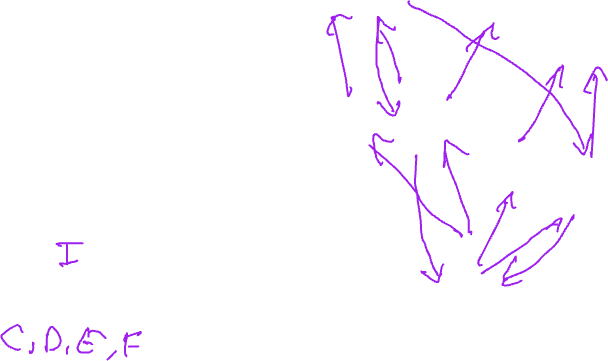 I
C,D,E,F